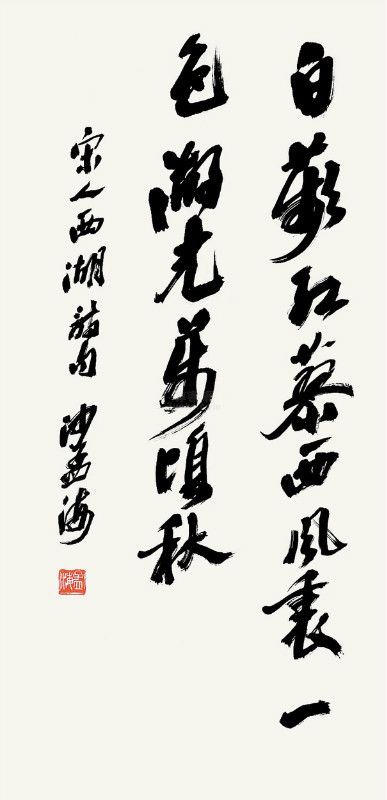 白蘋紅蓼西風裏一
色湖光萬頃秋
宋人西湖詩句 沙孟海